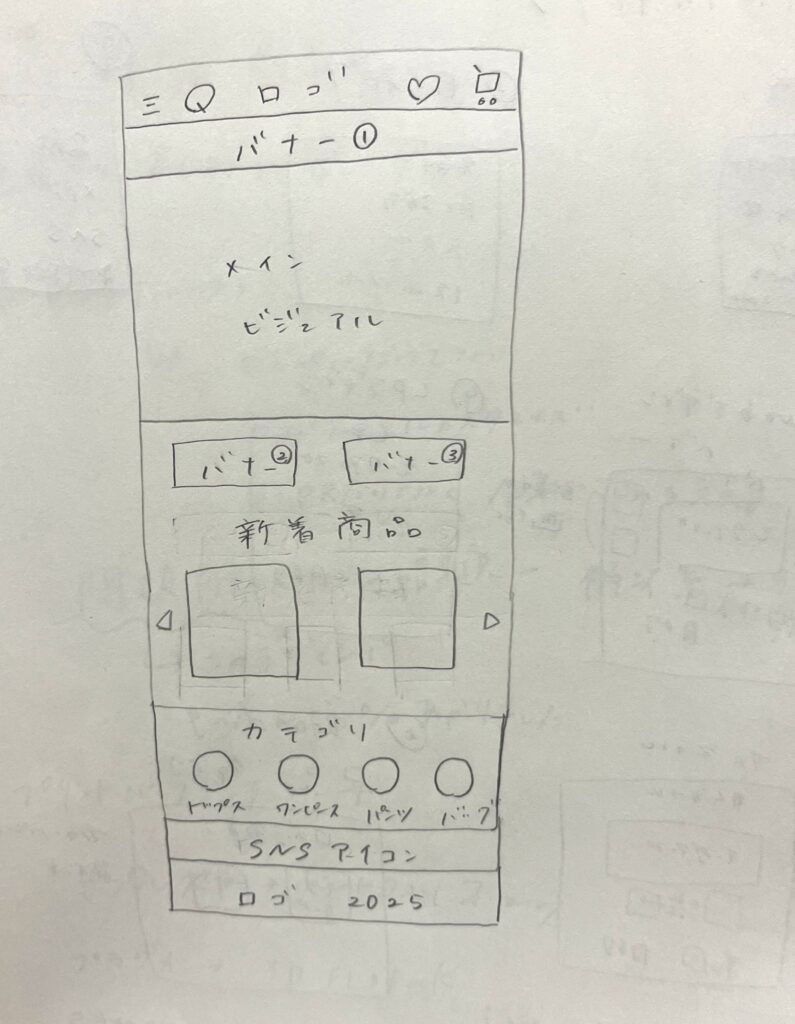 ロゴ
バナー①
メイン
ビジュアル
バナー② バナー③
新着商品
カテゴリ
トップス ワンピース パンツ バッグ
SNSアイコン
ロゴ 2025